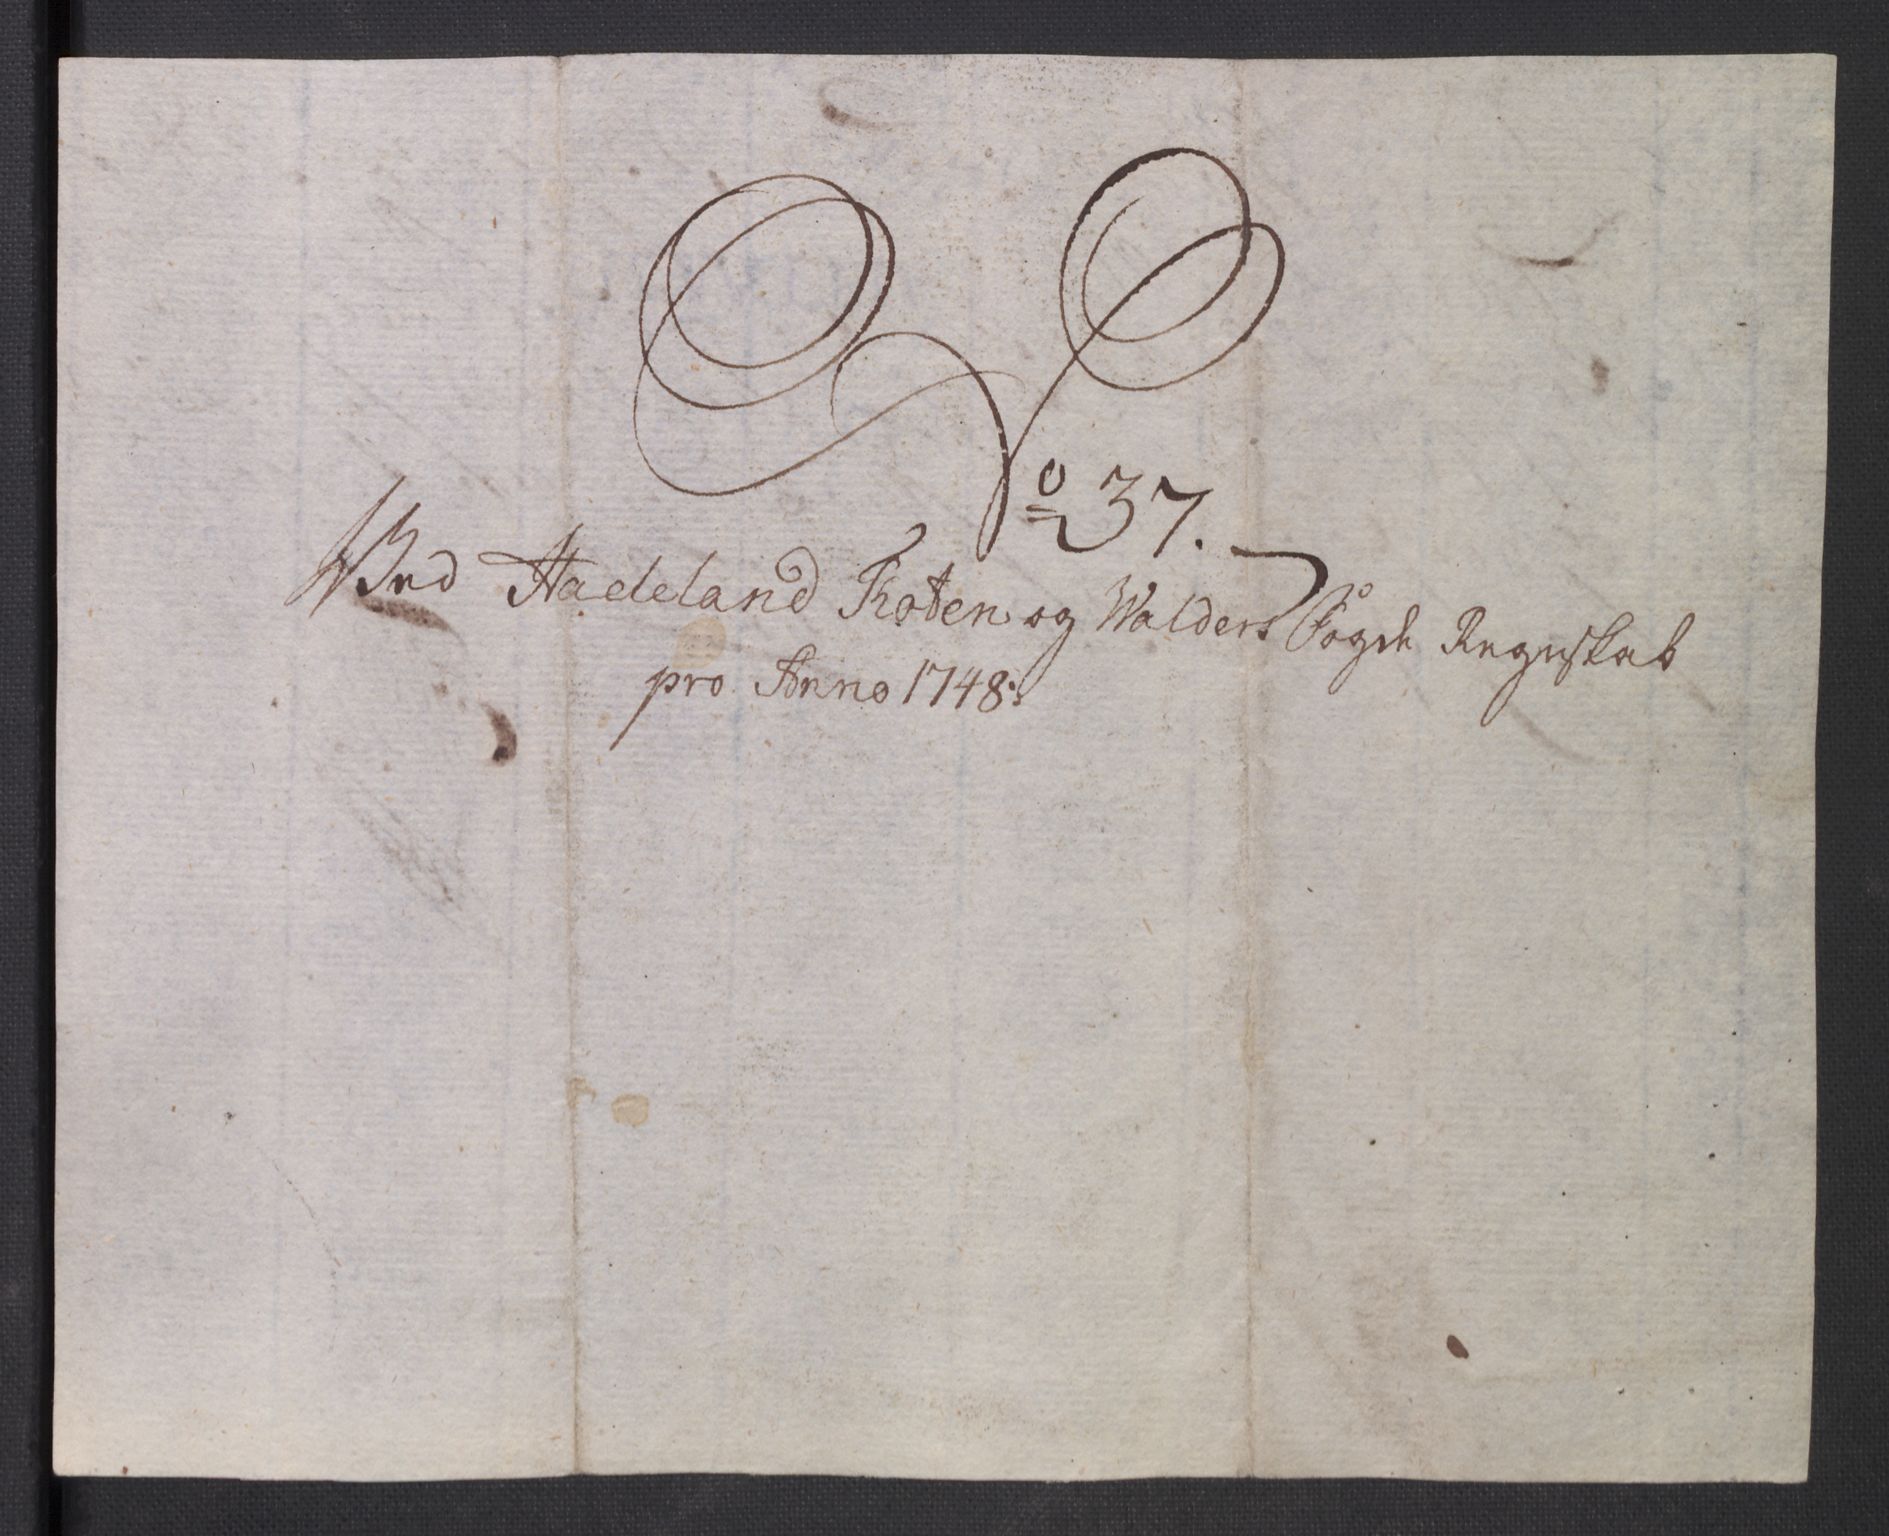 No 37.
Wed Hadeland Thoten og Walders Fogde Regnskab
pro Anno 1748.